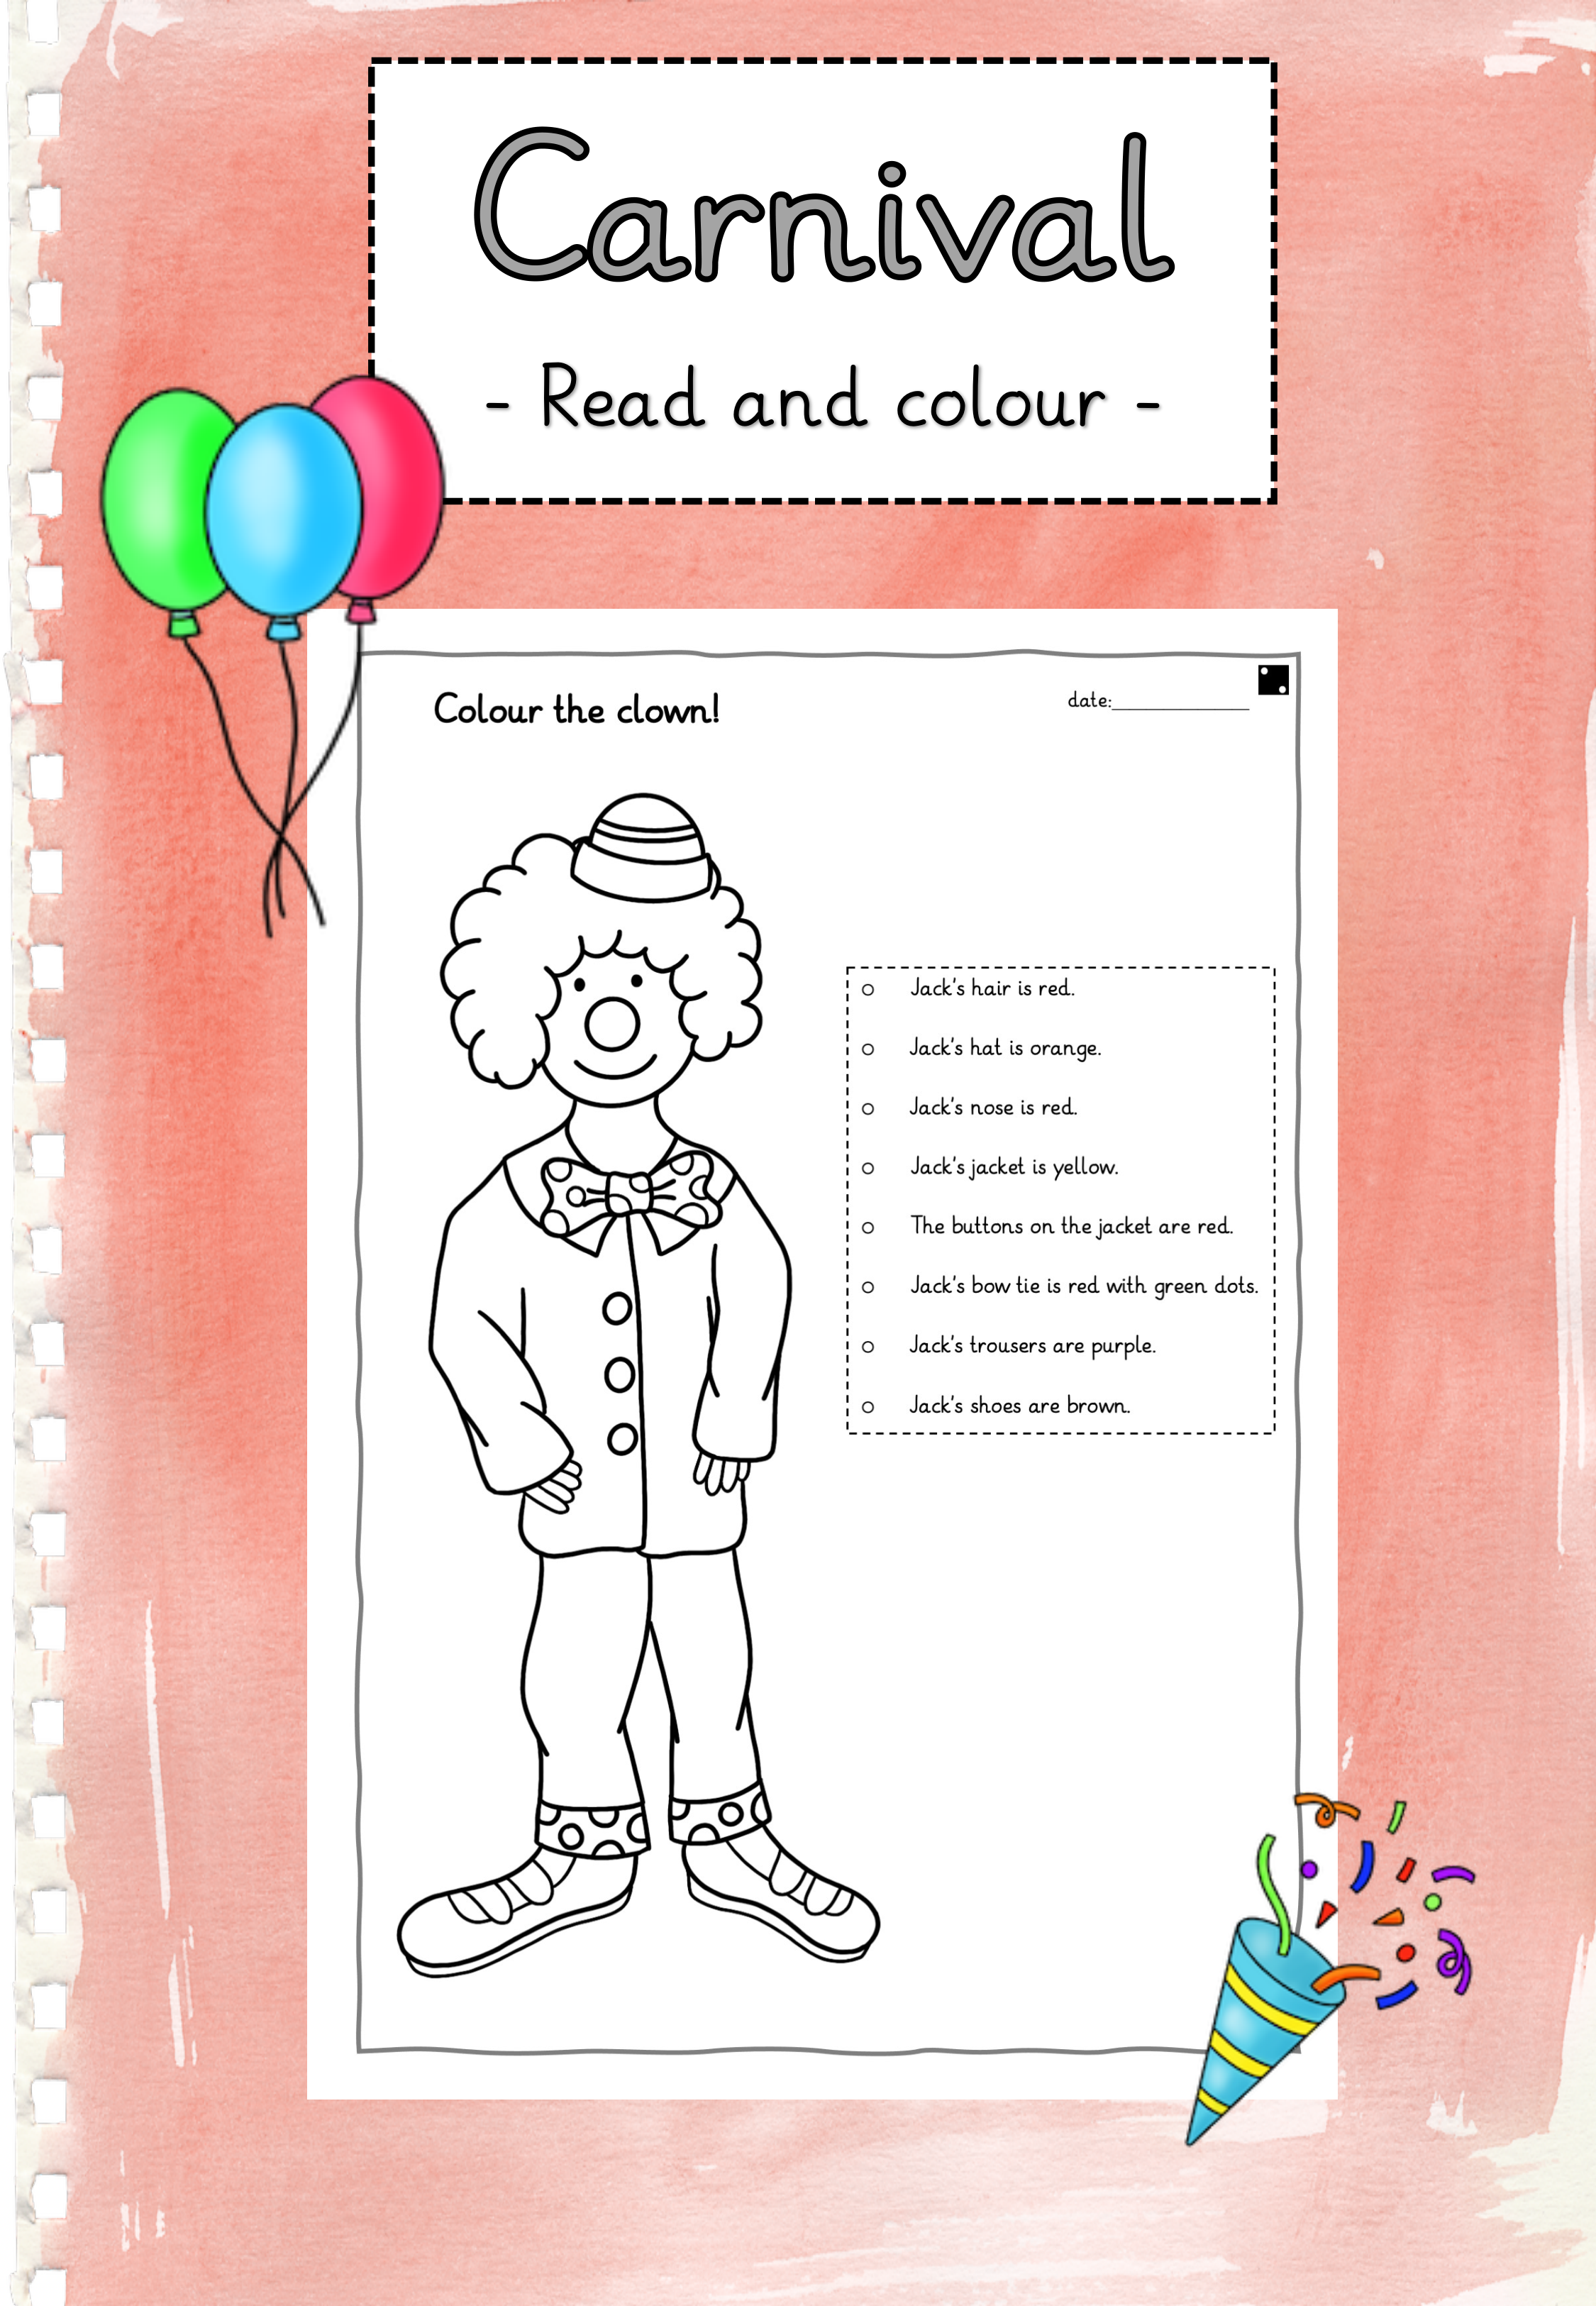 Carnival
- Read and colour -
Colour the clown!
date:______________
Jack's hair is red.
Jack's hat is orange.
Jack's nose is red.
Jack's jacket is yellow.
The buttons on the jacket are red.
Jack's bow tie is red with green dots.
Jack's trousers are purple.
Jack's shoes are brown.